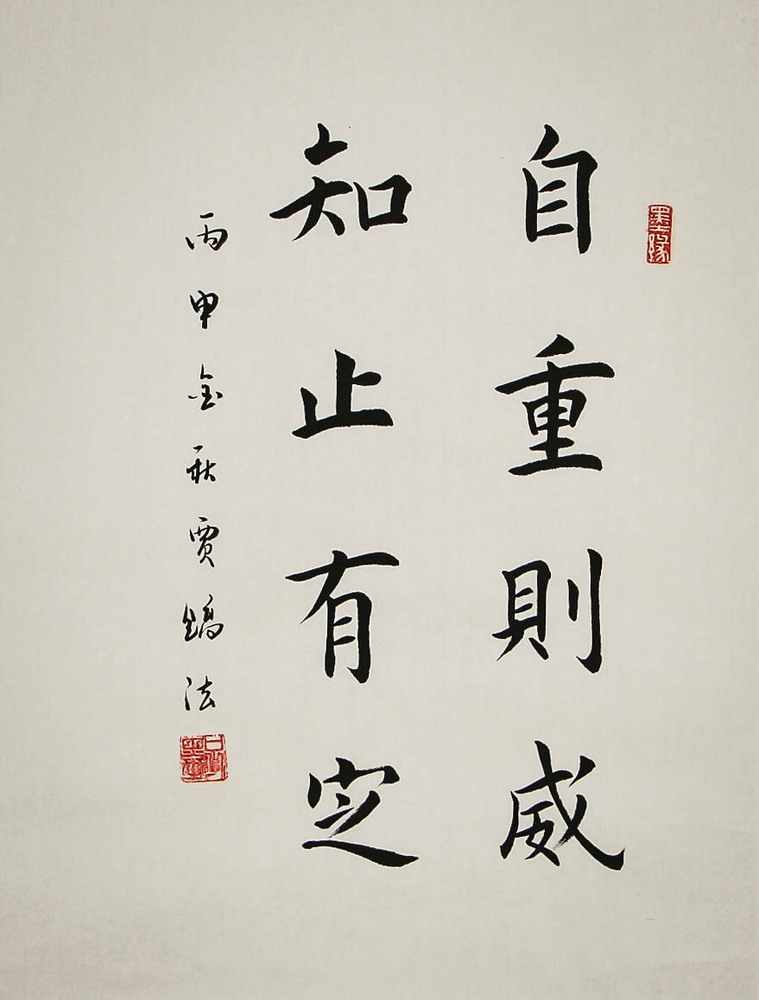 自重則威
知止有定
丙申金秋賈鐈法
墨緣